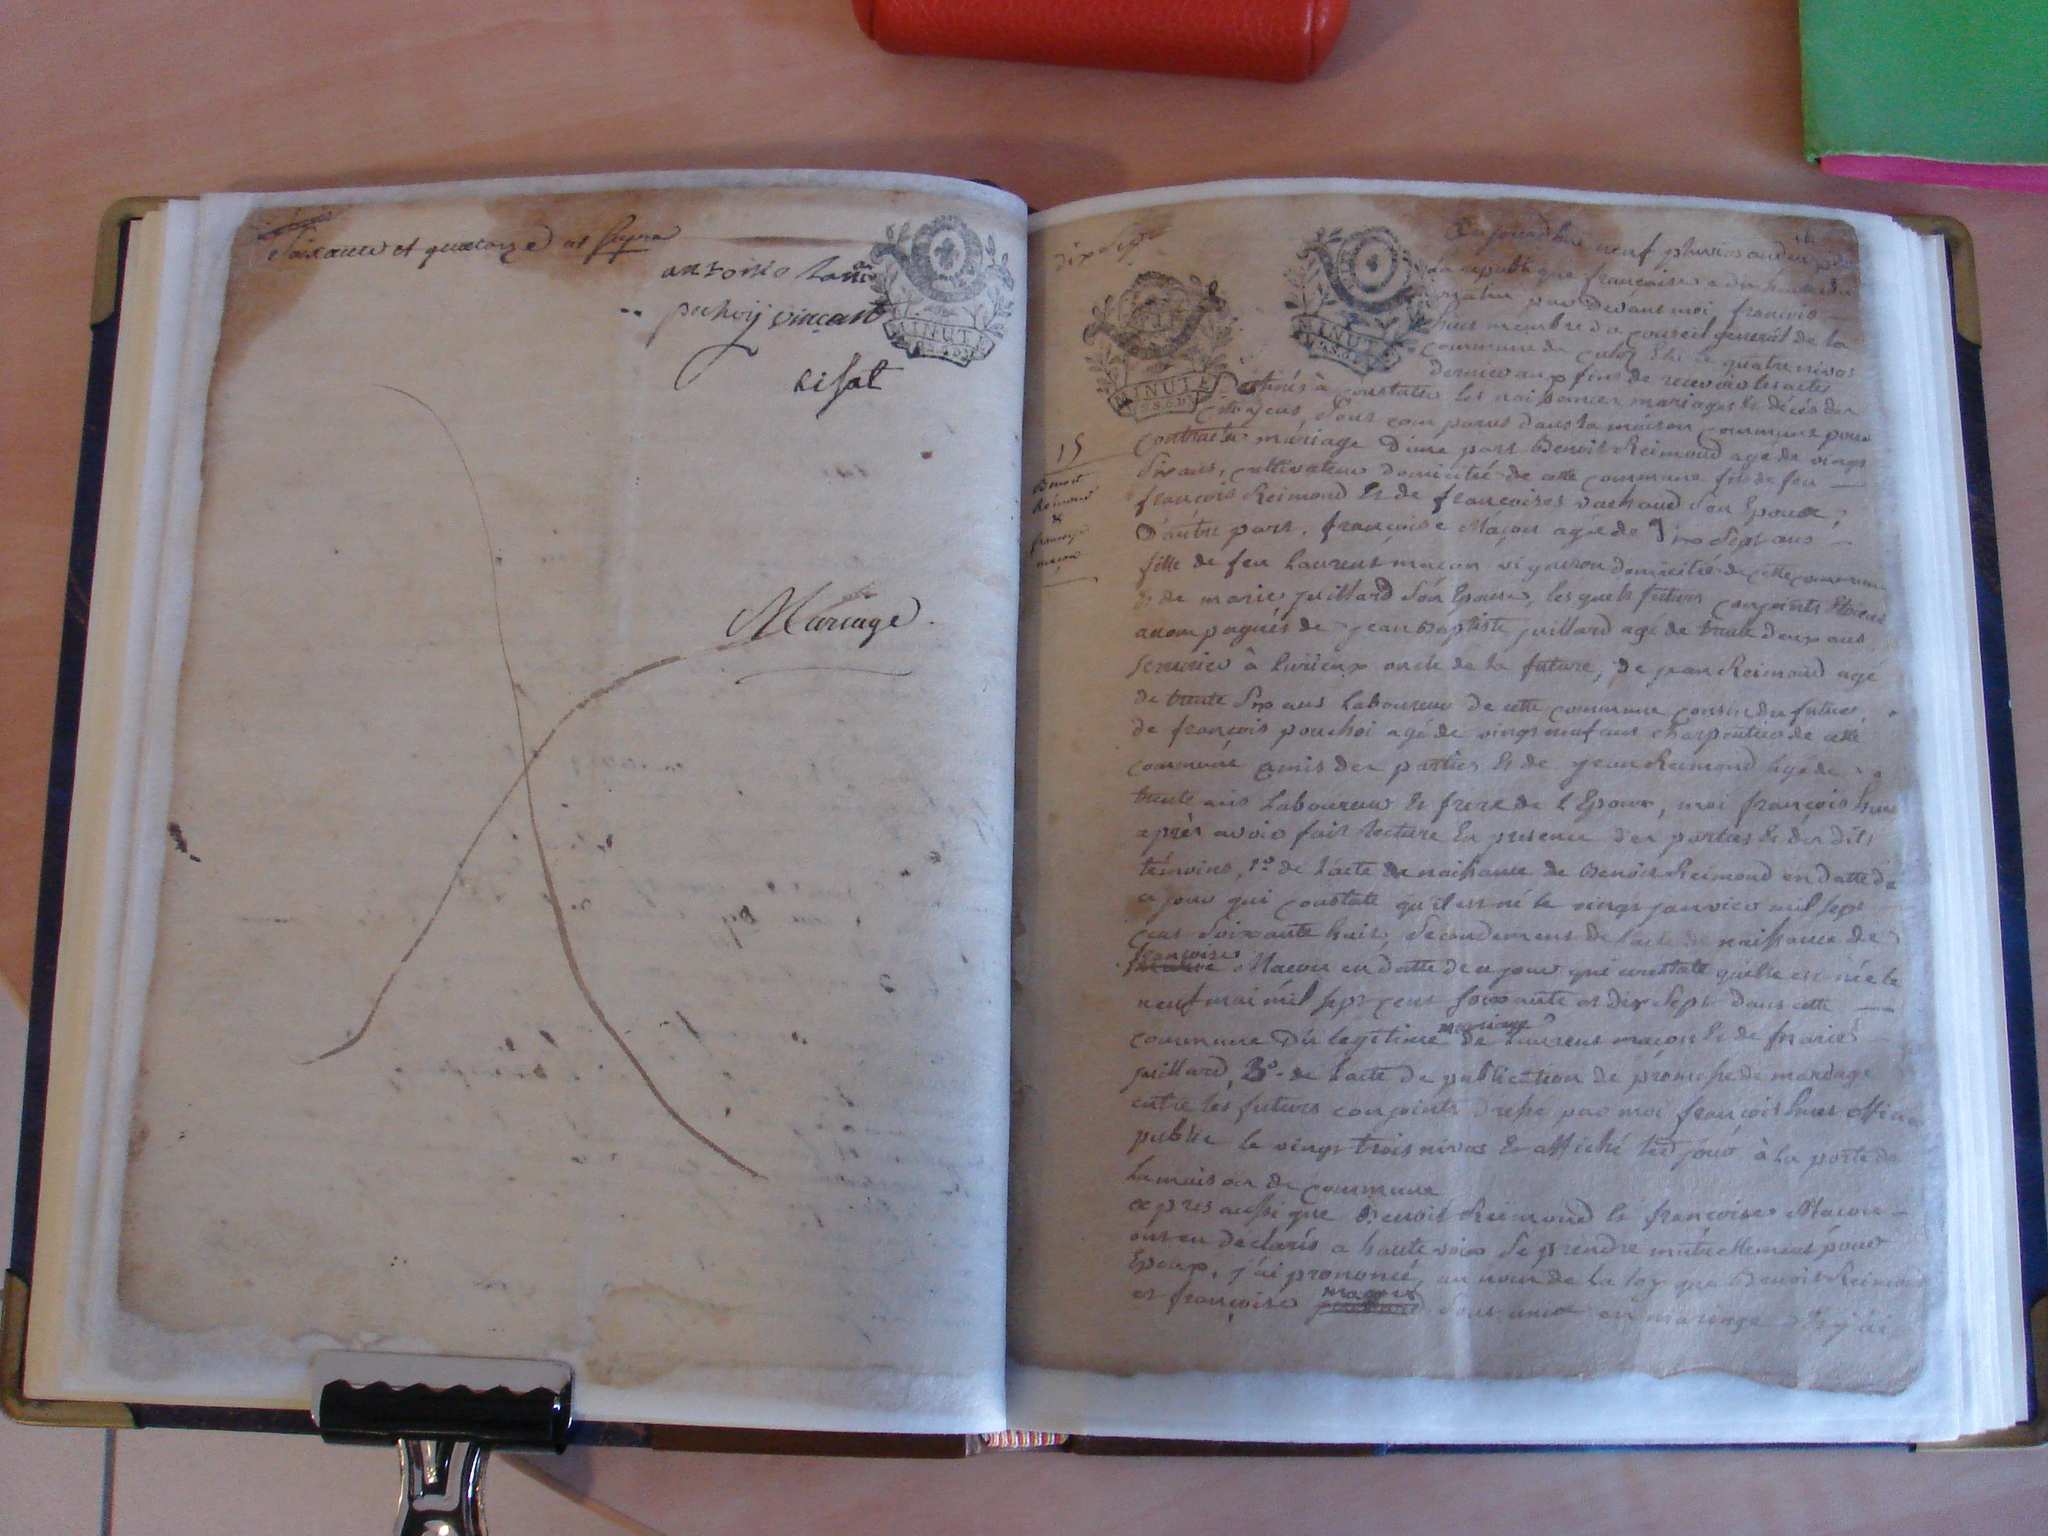 Soixante et quatorze at supra
antoine
puhoij vincent
Lisat
MINUT
Mariage
dix sept
MINUT
MINUT
Aujourd'hui neuf pluviose
la republique françoise a dix heures du
matin par devant moi françois
hues membre du conseil general de la
commune de Élu le quatre nivos
dernier aux fins de recevoir les actes
destinés à constater les naissances mariages & décés des
Citoyens, sont comparus dans la maison commune pour
contracter mariage d'une part Benoit Reimond agé de vingt
six ans, cultivateur domicilié de cette commune fils de feu
françois Reimond & de françoises vachaud son Epouse,
D'autre part, françoise Maçon agée de dix sept ans
fille de feu Laurent maçon vigneron domicilié de cette commune
& de marie juillard son Epouse, lesquels futurs conjoints etoient
acompagnés de jean Baptiste juillard agé de trente deux ans
serrurier à oncle de la future, de jean Reimond agé
de trente six ans Laboureur de cette commune cousin du futur,
de françois pouchoi agé de vingt neuf ans charpentier de cette
commune amis des parties & de jean Reimond agé de
trente ans Laboureur & frere de l'Epoux, moi françois hues
après avoir fait lecture en presence des parties & des dits
témoins, 1º de l'acte de naissance de Benoit Reimond en datte de
ce jour qui constate qu'il est né le vingt janvier mil sept
cent soixante huit, secondement de l'acte de naissance de
françoise
Macon en datte de ce jour qui constate qu'elle est née le
neuf mai mil sept cent soixante et dix sept dans cette
mariage
commune du legitime de Laurent macon & de marie
juillard, 3º de l'acte de publication de promesse de mariage
entre les futurs conjoints dressé par moi françois hues officier
public le vingt trois nivos & affiché led jour à la porte de
la maison de commune
après aussi que Benoit Reimond & françoise Macon
ont eu declaré a haute voix se prendre mutuellement pour
Epoux, j'ai prononcé, au nom de la loy que Benoit Reimond
macon
et françoise sont unis en mariage & j'ai
15
Benoit
Reimond
&
françoise
macon